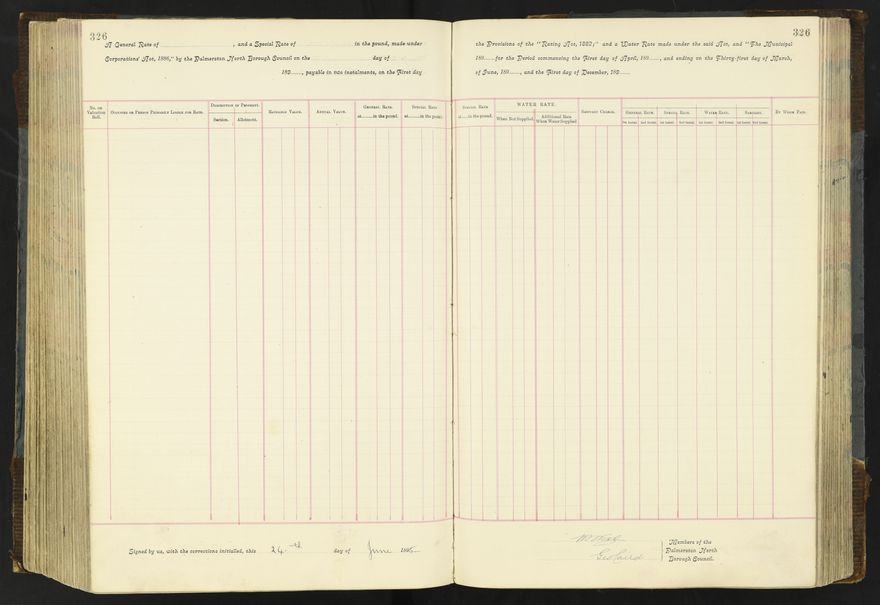 326
326
A General Rate of , and a Special Rate of in the pound, made under
the Provisions of the "Rating Act, 1882;" and a Water Rate made under the said Act, and "The Municipal
Corporations' Act, 1886," by the Palmerston North Borough Council on the day of
189 for the Period commencing the First day of April, 189 , and ending on the Thirty-first day of March,
189 , payable in two instalments, on the First day
of June, 189 , and the First day of December, 189
No. on Valuation Roll.
Occupier or Person Primarily Liable for Rate.
Description of Property.
Section.
Allotment.
Rateable Value.
Annual Value.
General Rate at in the pound.
Special Rate at in the pound.
Special Rate at in the pound.
WATER RATE.
When Not Supplied.
Additional Rate When Water Supplied
Sanitary Charge.
General Rate.
1st Instal. 2nd Instal.
Special Rate.
1st Instal. 2nd Instal.
Water Rate.
1st Instal. 2nd Instal.
Sanitary.
1st Instal. 2nd Instal.
By Whom Paid.
Signed by us, with the corrections initialled, this 24th day of June
Members of the
Palmerston North
Borough Council.